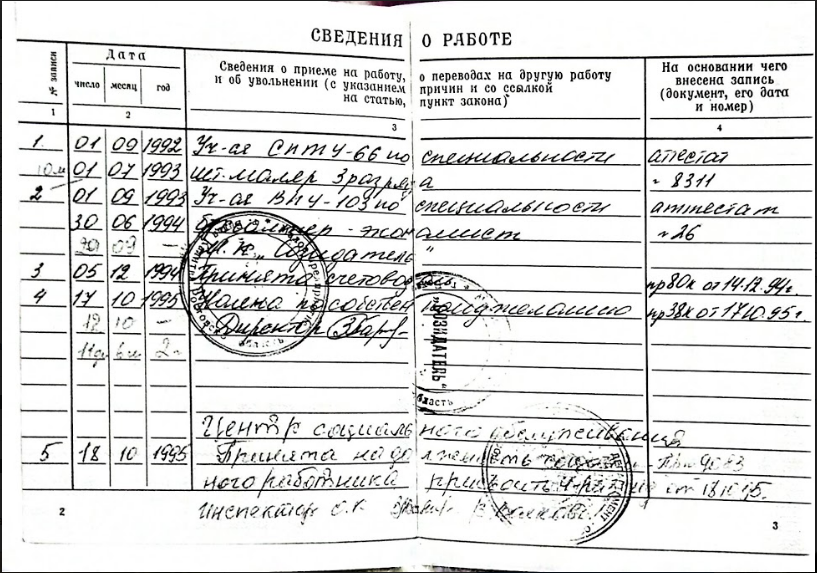 СВЕДЕНИЯ О РАБОТЕ
№ записи
Дата
число месяц год
Сведения о приеме на работу, о переводах на другую работу
и об увольнении (с указанием причин и со ссылкой
на статью, пункт закона)
На основании чего
внесена запись
(документ, его дата
и номер)
1 2 3 4
1. 01 09 1992 Уч-ся СПТУ-66 по специальности аттестат
10м 01 07 1993 шт-маляр 3 разряда 8311
2 01 09 1993 Уч-ся ВПУ-103 по специальности аттестат
30 06 1994 бухгалтер-экономист 26
Созидатель"
3 05 12 1994 Принята счетоводом пр80к от 14.12.94г.
4 17 10 1995 Уволена по собственному желанию пр38к от 17.10.95г.
18 10 — Директор
"СОЗИДАТЕЛЬ"
область
Центр социального обслуживания
5 18 10 1995 Принята на должность
ного работника присвоить 4 от 18.10.95.
Инспектор О.К.
2
3